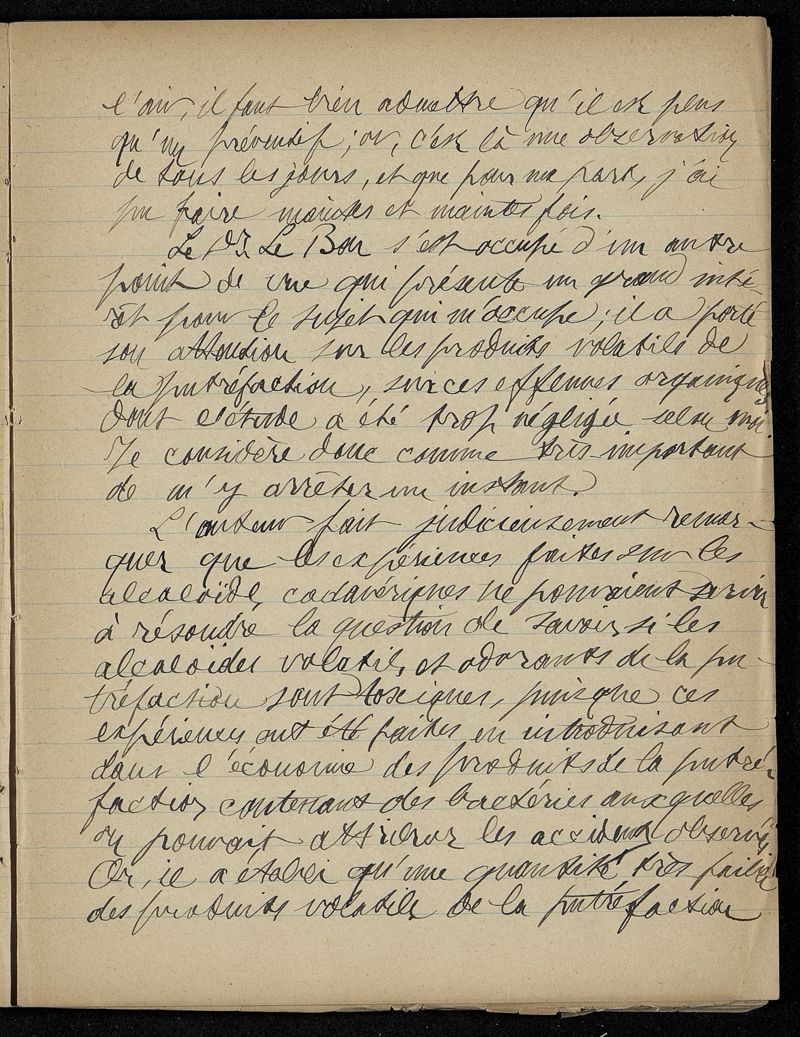 l'air, il faut bien admettre qu'il est plus
qu'un préventif ; or, c'est là une observation
de tous les jours, et que pour ma part, j'ai
pu faire maintes et maintes fois.
Le Dr. Le Bon s'est occupé d'un autre
point de vue qui présente un grand inté-
rêt pour le sujet qui m'occupe ; il a porté
son attention sur les produits volatils de
la putréfaction, sur ces effluves organiques
dont l'étude a été trop négligée selon moi.
Je considère donc comme très important
de m'y arrêter un instant.
L'auteur fait judicieusement remar-
quer que les expériences faites sur les
alcaloïdes cadavériques ne pouvaient servir
à résoudre la question de savoir si les
alcaloïdes volatils et odorants de la pu-
tréfaction sont toxiques, puisque ces
expériences ont été faites en introduisant
dans l'économie des produits de la putré-
faction contenant des bactéries auxquelles
on pouvait attribuer les accidents observés
Or, il a établi qu'une quantité très faible
des produits volatils de la putréfaction